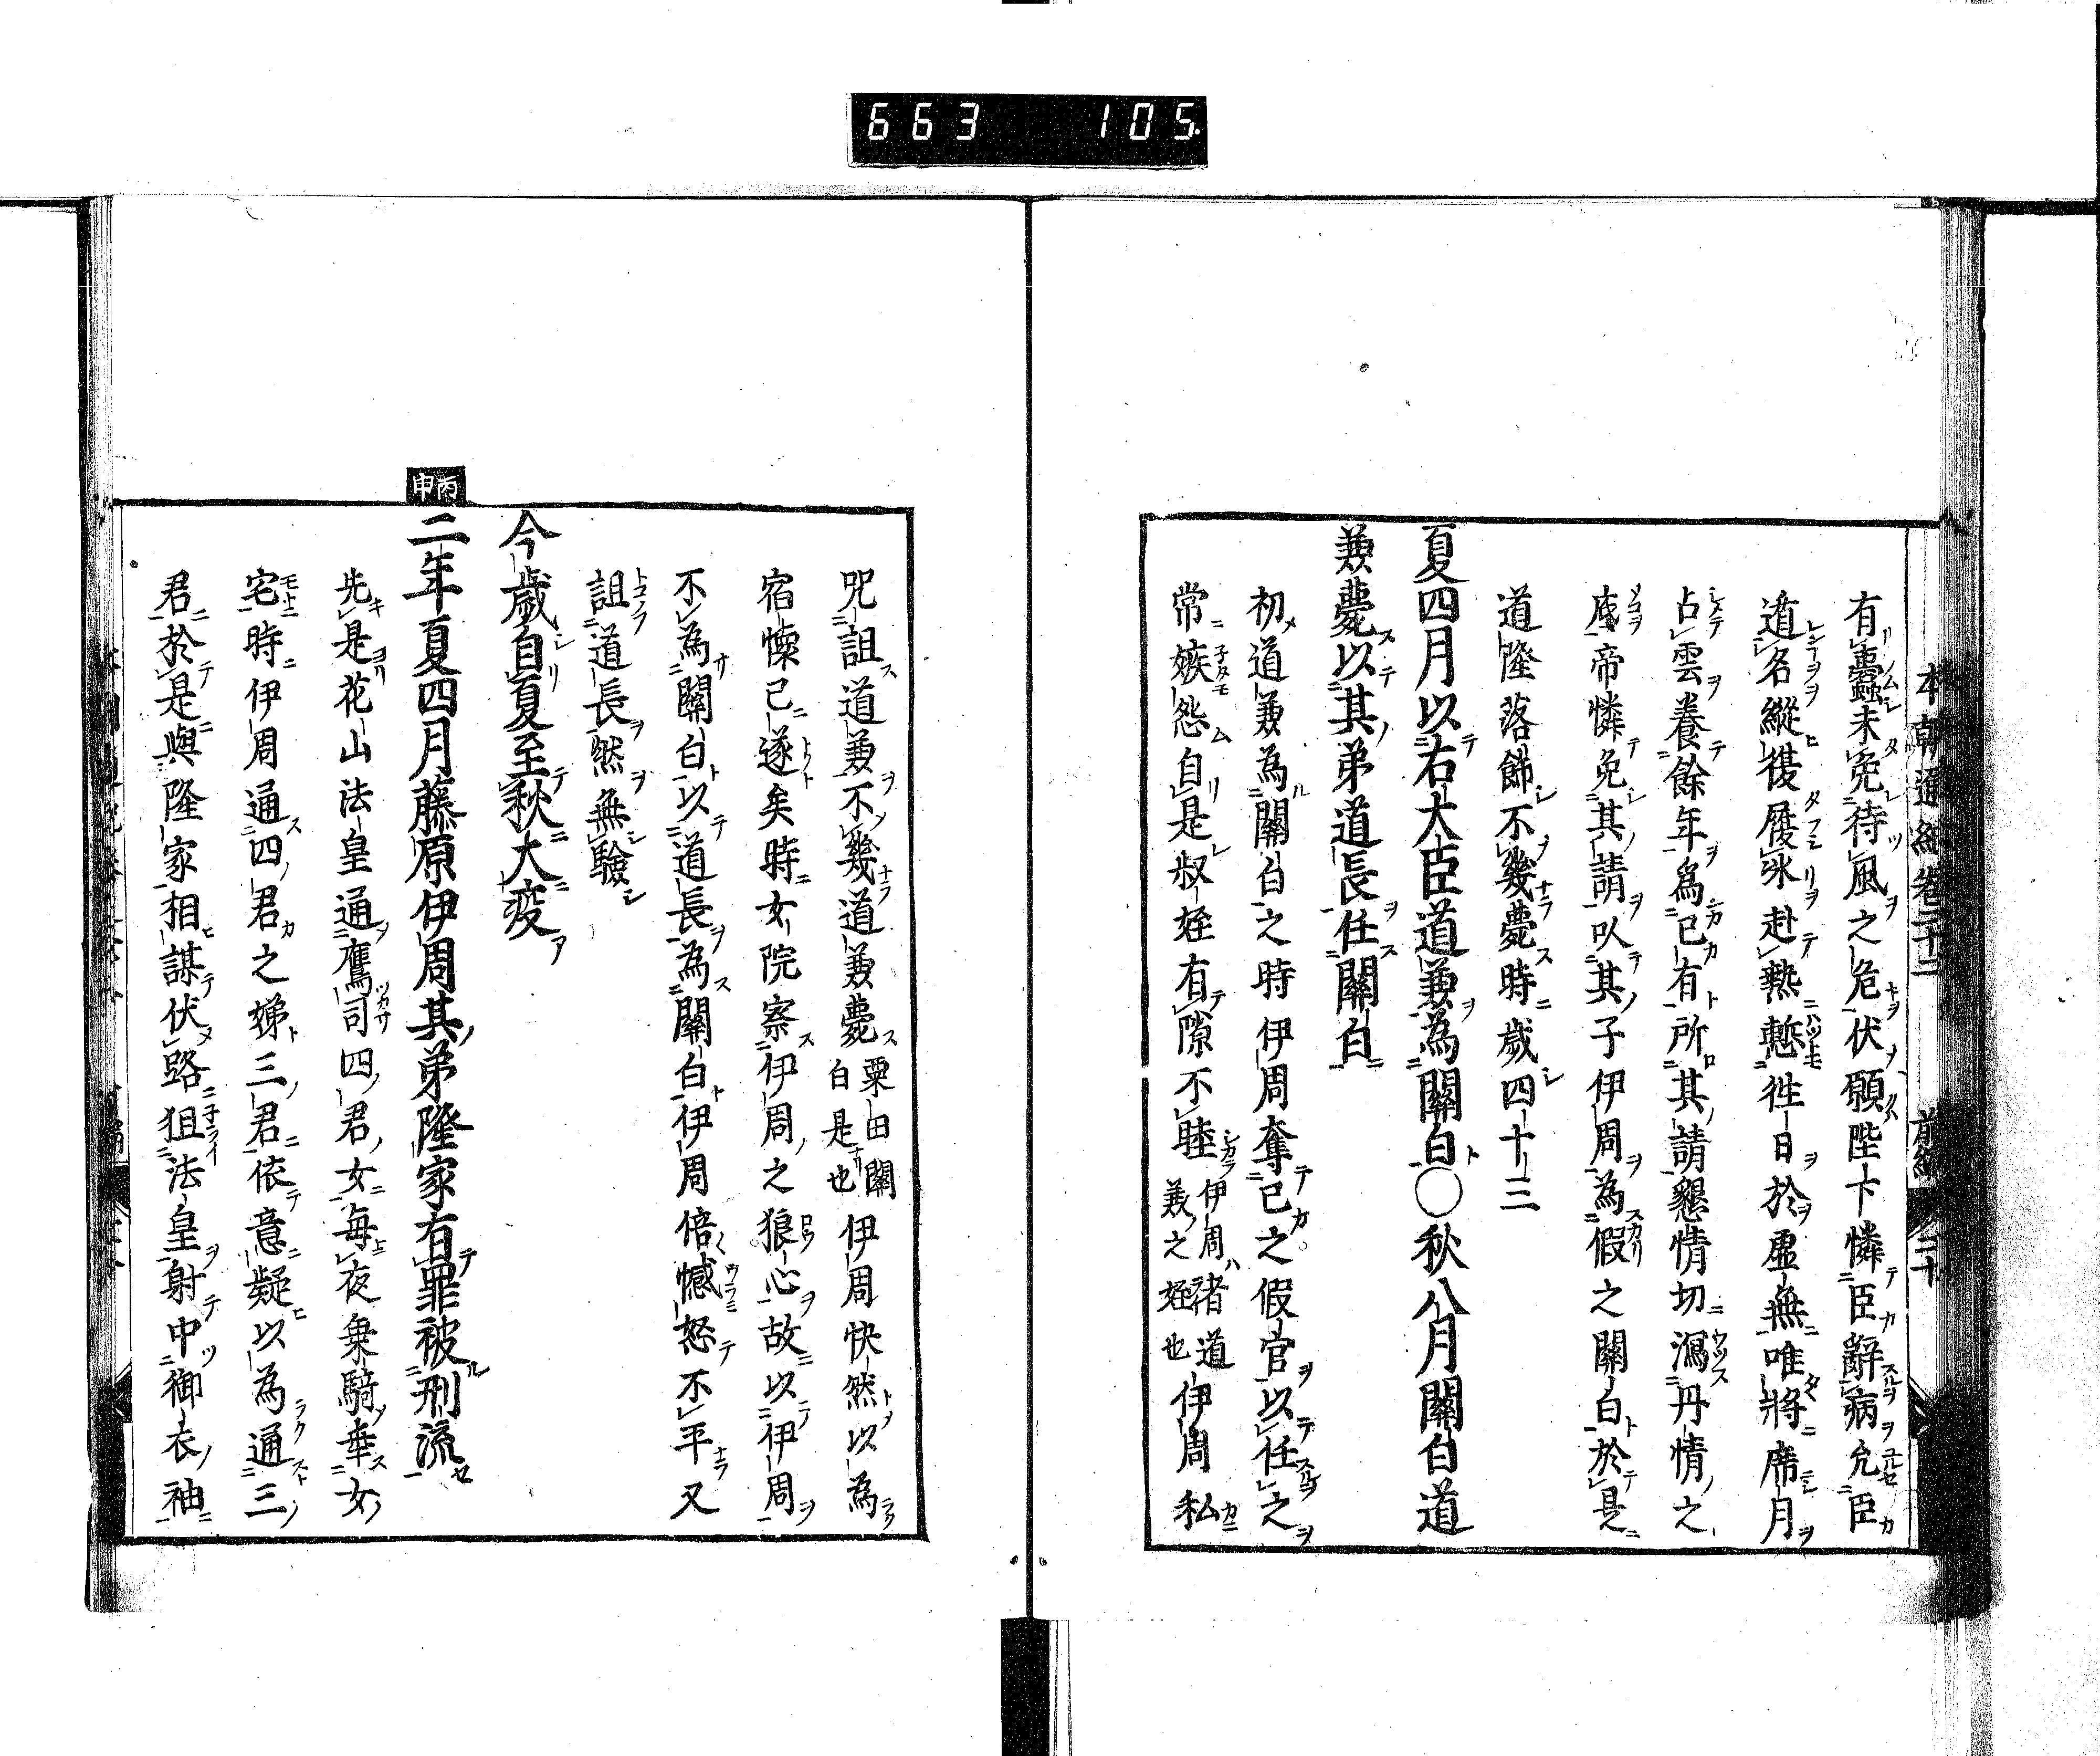 663 105
本朝通紀卷二十二 前編 二十
有蠹未免待風之危伏願陛下憐臣辭病允臣
遁名縱復履氷赴熱慙徃日於虛無唯將席月
占雲養餘年爲己有所其請懇情切瀉丹情之
底帝憐免其請以其子伊周為假之關白於是
道隆落飾不幾薨時歲四十三
夏四月以右大臣道兼為關白〇秋八月關白道
兼薨以其弟道長任關白
初道兼為關白之時伊周奪己之假官以任之
常嫉怨自是叔姪有隙不睦伊周者道兼之姪也伊周私
咒詛道兼不幾道兼薨粟田關白是也伊周快然以為
宿懷已遂矣時女院察伊周之狼心故以伊周
不為關白以道長為關白伊周倍憾怒不平又
詛道長然無驗
今歲自夏至秋大疫
丙申
二年夏四月藤原伊周其弟隆家有罪被刑流
先是花山法皇通鷹司四君女每夜乘騎幸女
宅時伊周通四君之娣三君依意疑以為通三
君於是與隆家相謀伏路狙法皇射中御衣袖